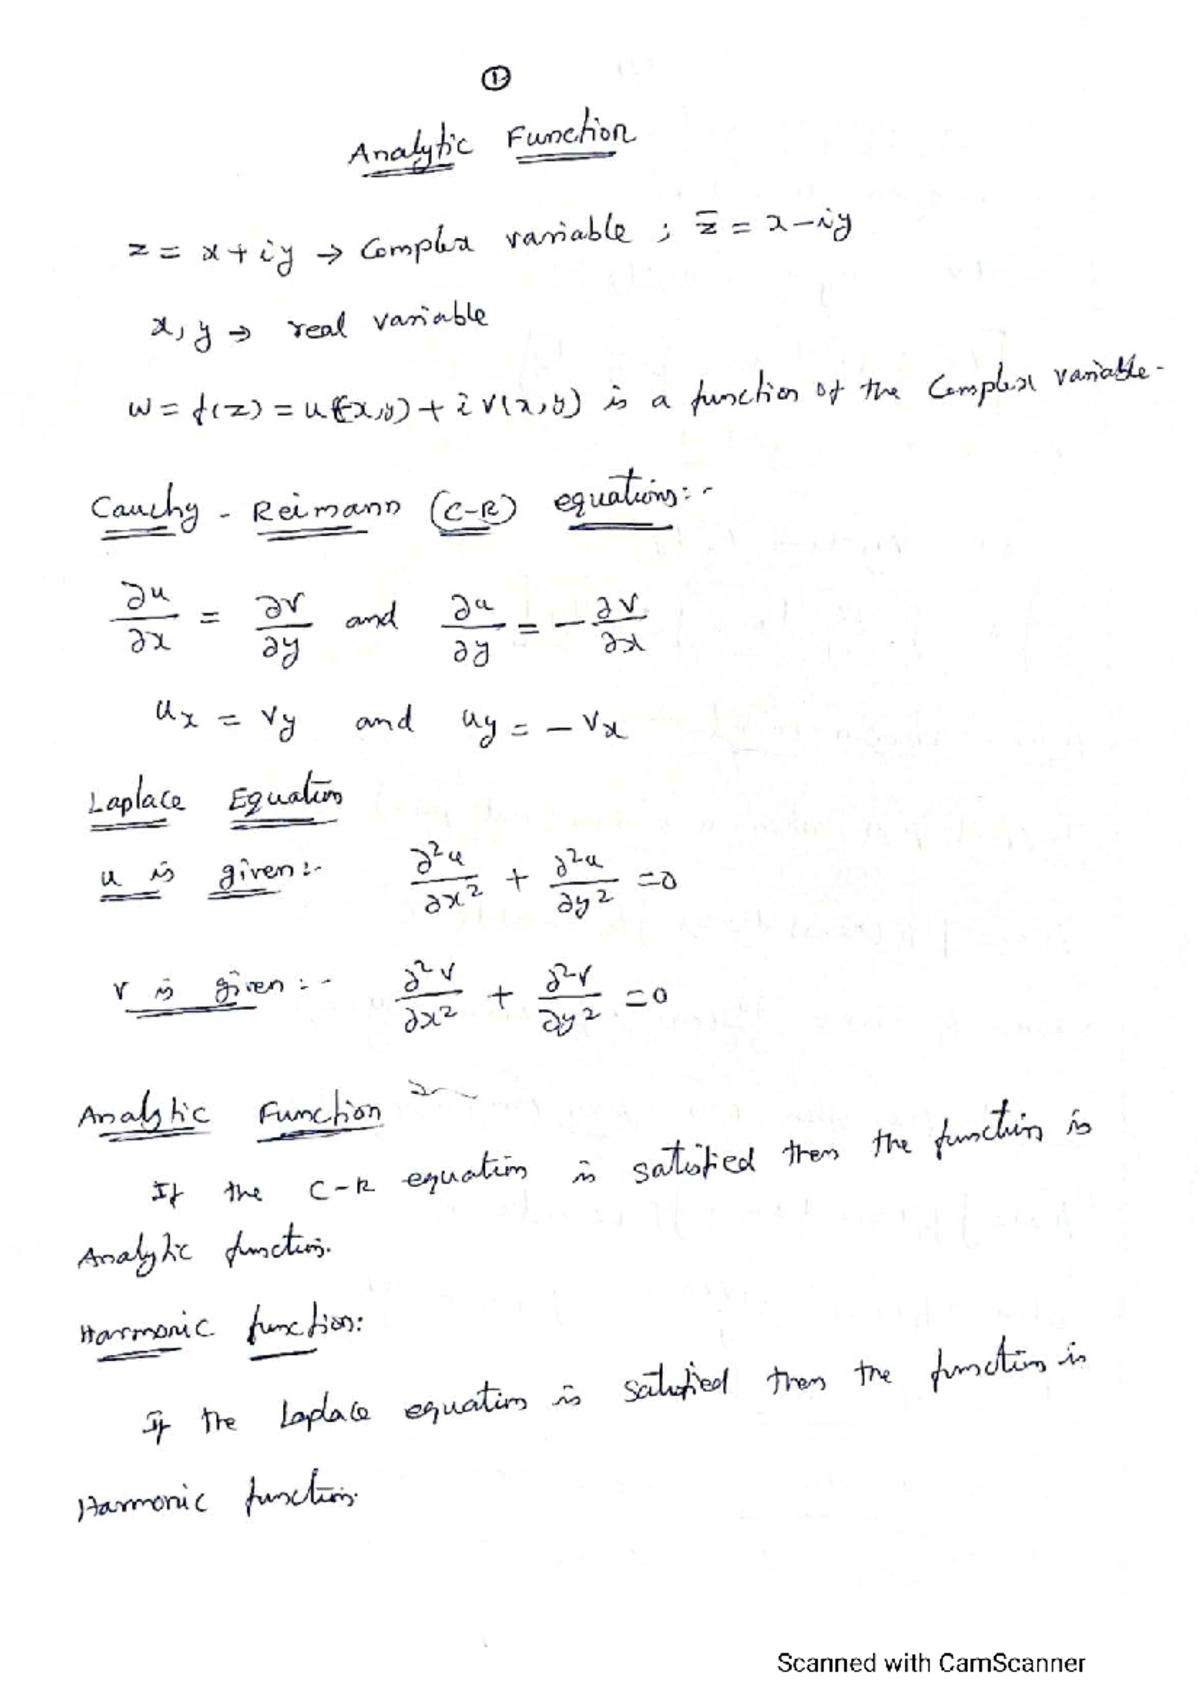 ①
Analytic Function
z = x + iy → Complex variable ; z̄ = x - iy
x, y → real variable
w = f(z) = u(x,y) + i v(x,y) is a function of the Complex variable.
Cauchy - Reimann (C-R) equations:-
∂u/∂x = ∂v/∂y and ∂u/∂y = - ∂v/∂x
ux = vy and uy = - vx
Laplace Equation
u is given:- ∂²u/∂x² + ∂²u/∂y² = 0
v is given:- ∂²v/∂x² + ∂²v/∂y² = 0
Analytic Function
If the C-R equation is satisfied then the function is
Analytic function.
Harmonic function:
If the Laplace equation is satisfied then the function is
Harmonic function.
Scanned with CamScanner